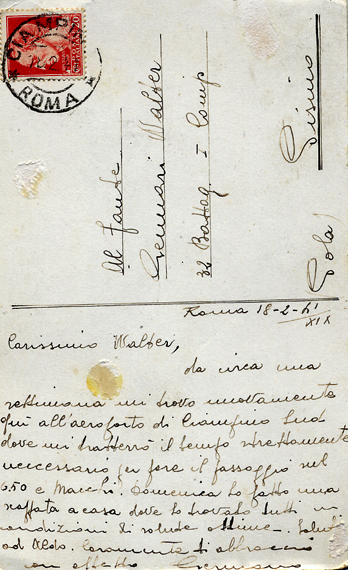 CIAMPINO
ROMA
20
Al Fante
Cremari Walter
32 Battag - Comp
Sisino
(Pola)
Roma 18-2-41
XIX
Carissimo Walter,
da circa una
settimana mi trovo nuovamente
qui all'aeroporto di Ciampino Sud
dove mi tratterrò il tempo strettamente
necessario per fare il passaggio sul
G.50 e Macchi. Domenica ho fatto una
scappata a casa dove ho trovato tutti in
condizioni di salute ottime. Saluti
ad Aldo. Caramente ti abbraccio
con affetto